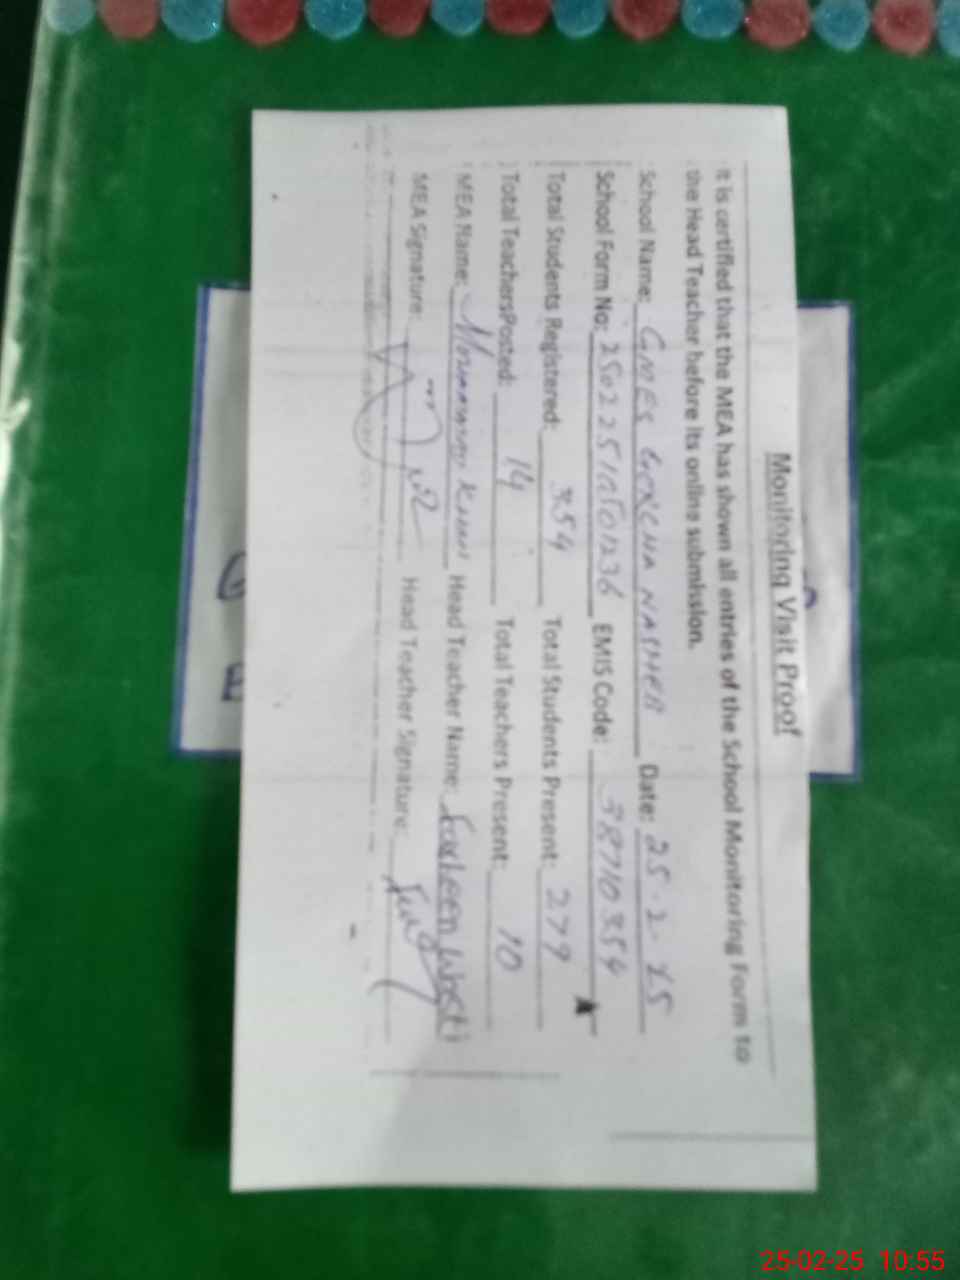 Monitoring Visit Proof
It is certified that the MEA has shown all entries of the School Monitoring Form to
the Head Teacher before its online submission.
School Name: GMES NASHER Date: 25.2.25
School Form No: EMIS Code: 38710354
Total Students Registered: 354 Total Students Present: 279
Total TeachersPosted: 14 Total Teachers Present: 10
MEA Name: Head Teacher Name:
MEA Signature: Head Teacher Signature:
25-02-25 10:55